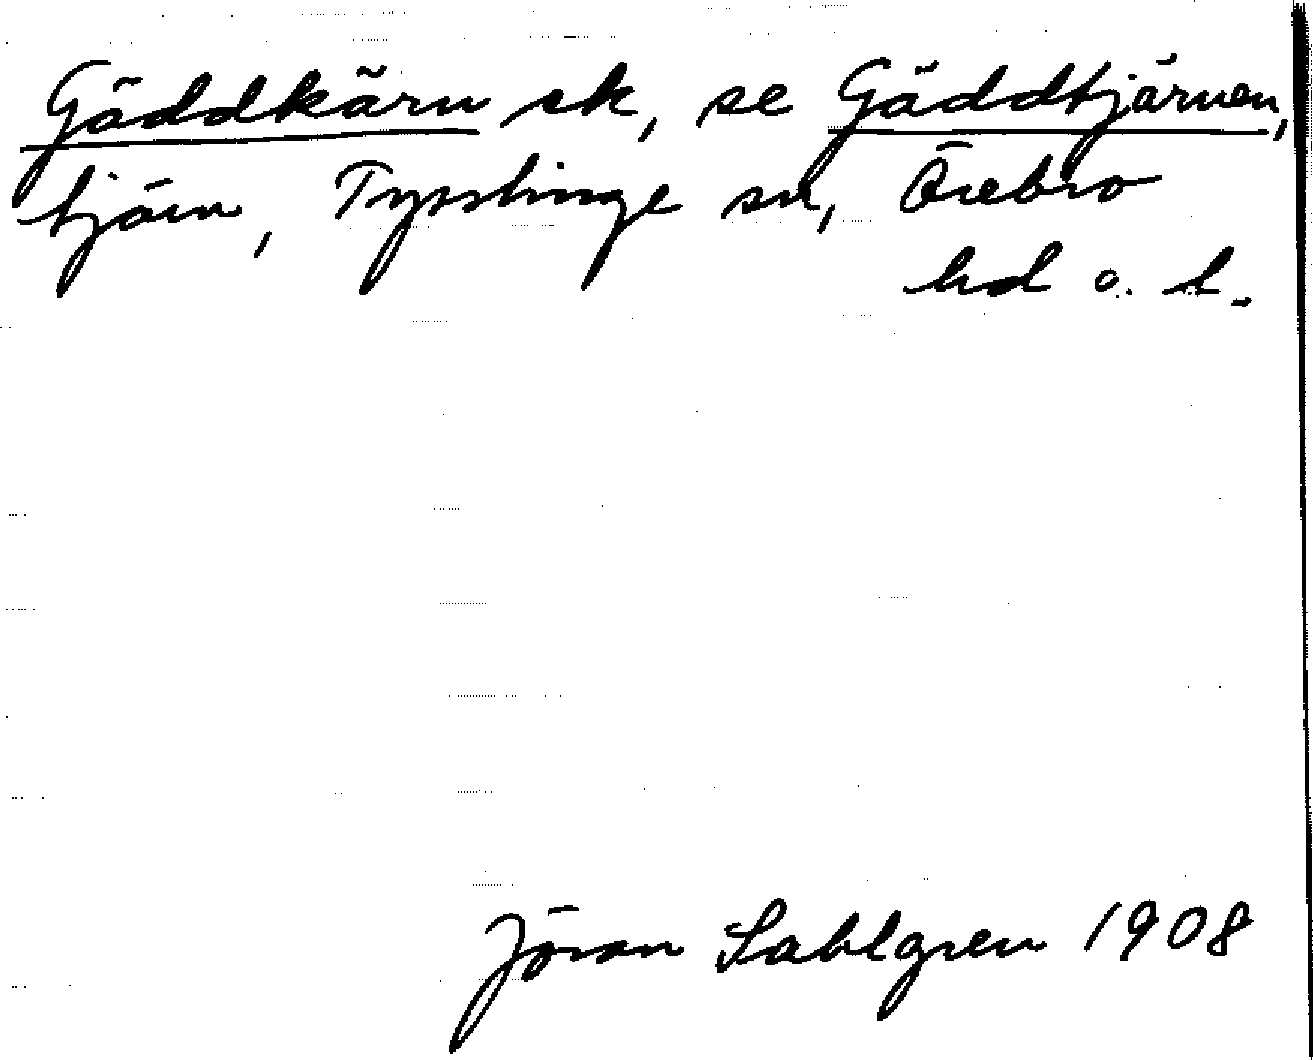 Gäddkärn ek, se Gäddtjärnen,
tjärn, Tysslinge sn, Örebro
hd o. l.
Jöran Sahlgren 1908